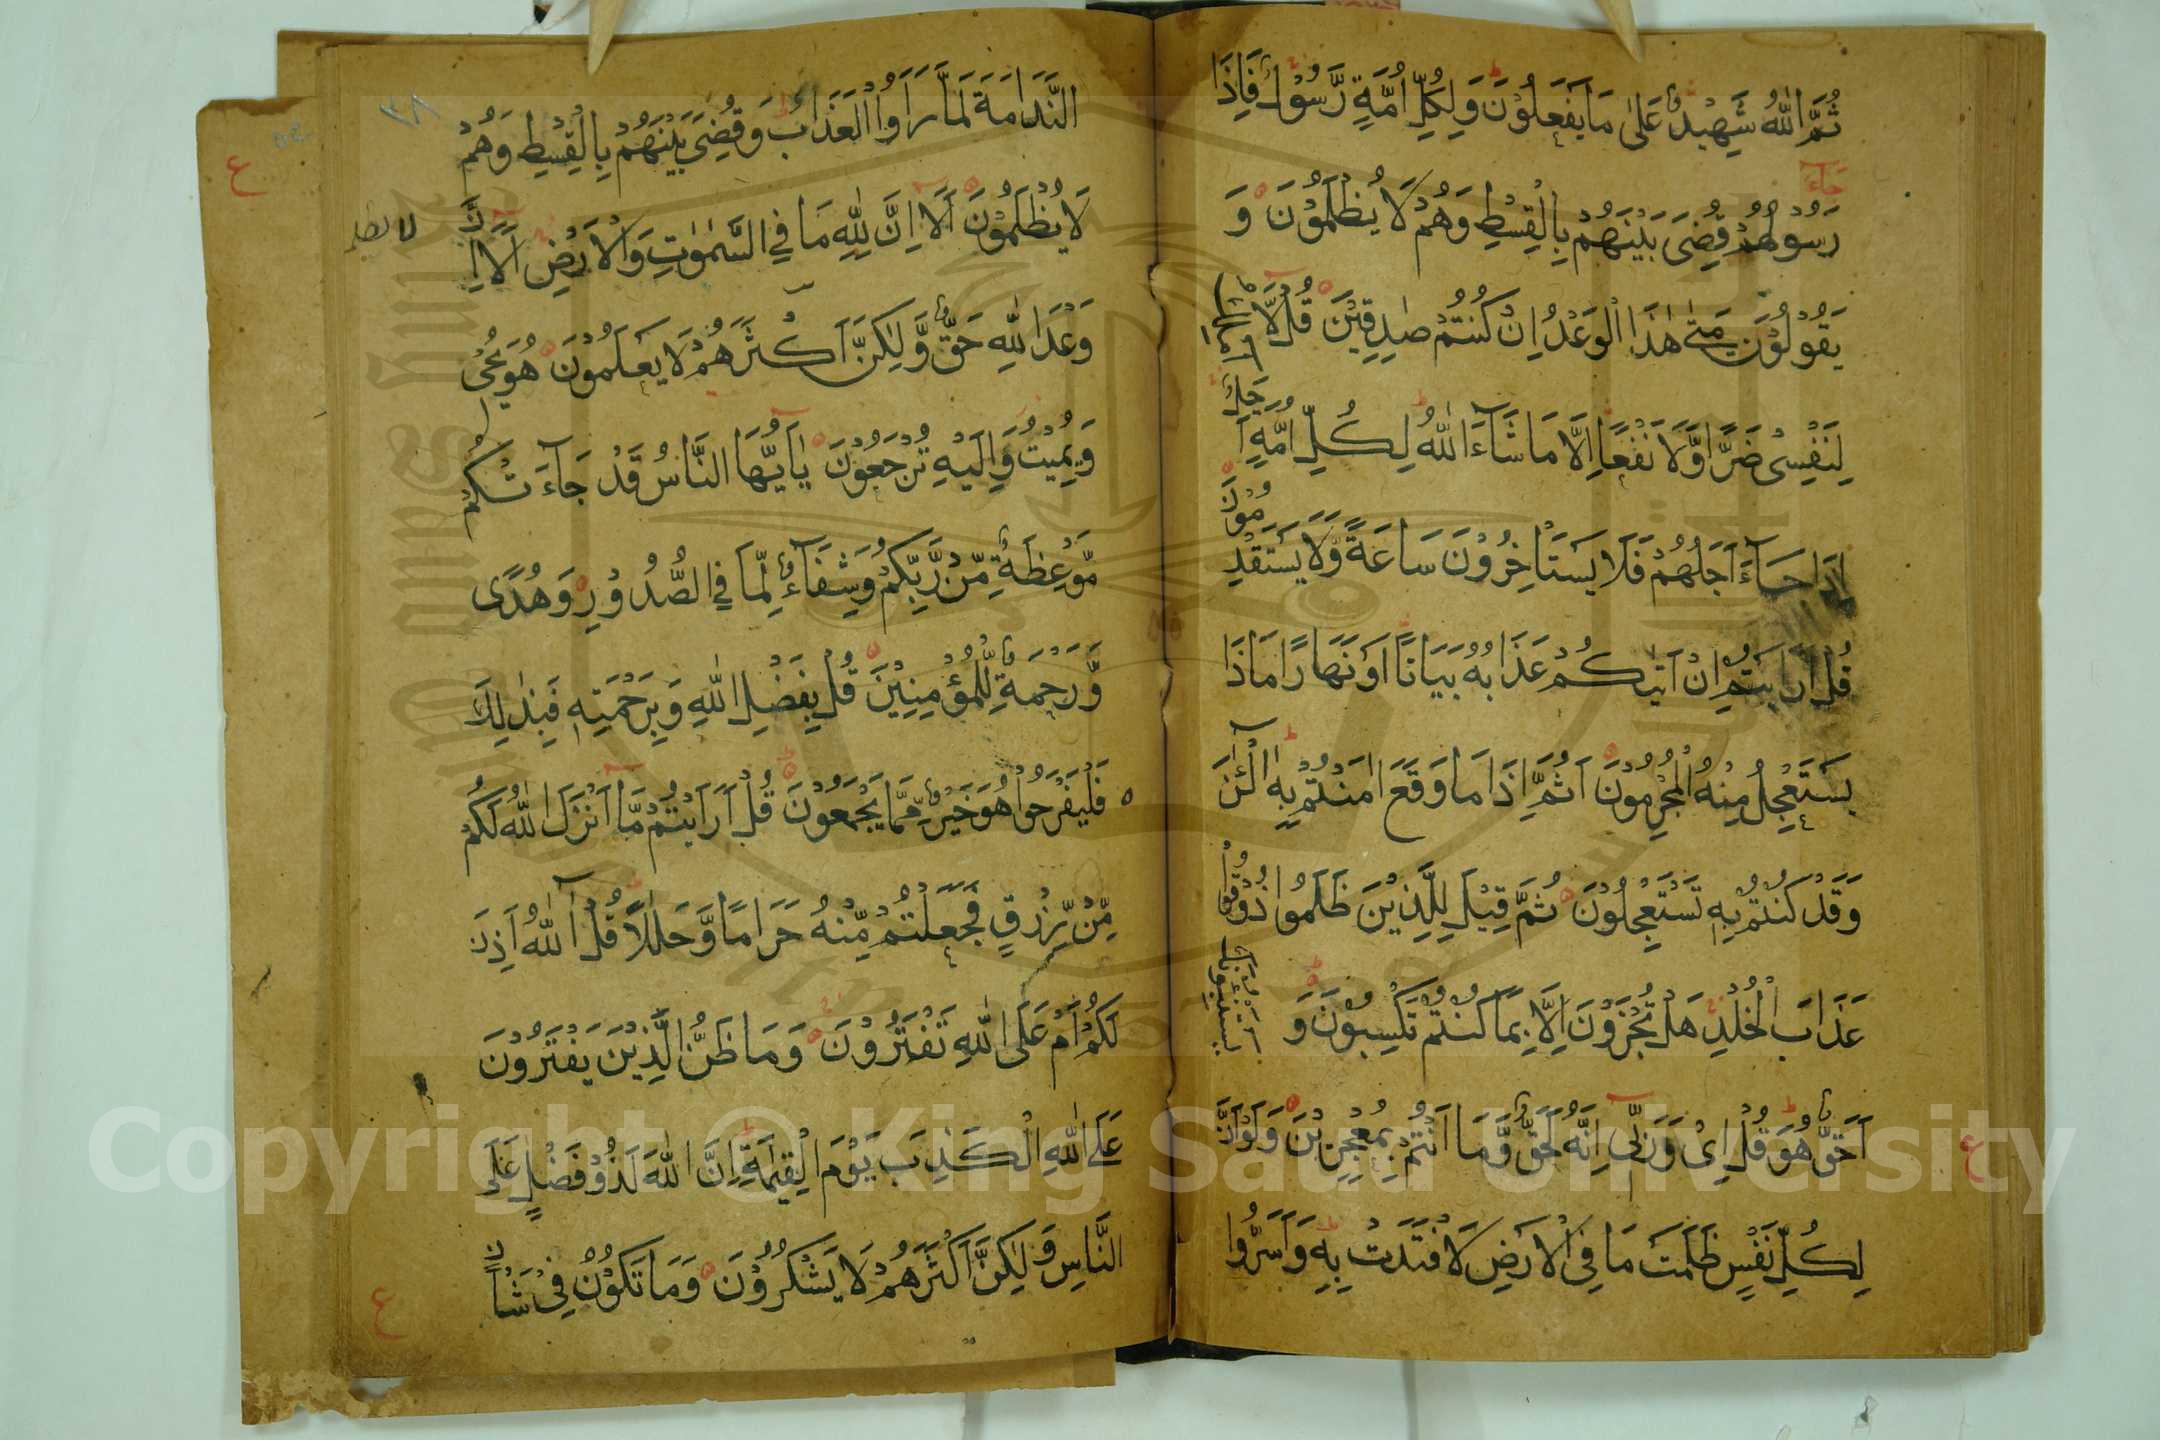 ثُمَّ اللّٰهُ شَهِيْدٌ عَلٰى مَا يَفْعَلُوْنَ وَلِكُلِّ اُمَّةٍ رَّسُوْلٌ فَاِذَا
جَآءَ
رَسُوْلُهُمْ قُضِىَ بَيْنَهُمْ بِالْقِسْطِ وَهُمْ لَا يُظْلَمُوْنَ وَ
يَقُوْلُوْنَ مَتٰى هٰذَا الْوَعْدُ اِنْ كُنْتُمْ صٰدِقِيْنَ قُلْ لَّآ اَمْلِكُ
لِنَفْسِىْ ضَرًّا وَّلَا نَفْعًا اِلَّا مَا شَآءَ اللّٰهُ لِكُلِّ اُمَّةٍ اَجَلٌ
اِذَا جَآءَ اَجَلُهُمْ فَلَا يَسْتَاْخِرُوْنَ سَاعَةً وَّلَا يَسْتَقْدِمُوْنَ
قُلْ اَرَاَيْتُمْ اِنْ اَتٰىكُمْ عَذَابُهٗ بَيَاتًا اَوْ نَهَارًا مَّاذَا
يَسْتَعْجِلُ مِنْهُ الْمُجْرِمُوْنَ اَثُمَّ اِذَا مَا وَقَعَ اٰمَنْتُمْ بِهٖ آلْـٰٔنَ
وَقَدْ كُنْتُمْ بِهٖ تَسْتَعْجِلُوْنَ ثُمَّ قِيْلَ لِلَّذِيْنَ ظَلَمُوْا ذُوْقُوْا
عَذَابَ الْخُلْدِ هَلْ تُجْزَوْنَ اِلَّا بِمَا كُنْتُمْ تَكْسِبُوْنَ وَ يَسْتَنْۢبِـُٔوْنَكَ
اَحَقٌّ هُوَ قُلْ اِىْ وَرَبِّىْٓ اِنَّهٗ لَحَقٌّ وَّمَا اَنْتُمْ بِمُعْجِزِيْنَ وَلَوْ اَنَّ
ع
لِكُلِّ نَفْسٍ ظَلَمَتْ مَا فِى الْاَرْضِ لَافْتَدَتْ بِهٖ وَاَسَرُّوا
٣٨
النَّدَامَةَ لَمَّا رَاَوُا الْعَذَابَ وَقُضِىَ بَيْنَهُمْ بِالْقِسْطِ وَهُمْ
ع
لَا يُظْلَمُوْنَ اَلَآ اِنَّ لِلّٰهِ مَا فِى السَّمٰوٰتِ وَالْاَرْضِ اَلَآ اِنَّ
وَعْدَ اللّٰهِ حَقٌّ وَّلٰكِنَّ اَكْثَرَهُمْ لَا يَعْلَمُوْنَ هُوَ يُحْىٖ
وَيُمِيْتُ وَاِلَيْهِ تُرْجَعُوْنَ يٰٓاَيُّهَا النَّاسُ قَدْ جَآءَتْكُمْ
مَّوْعِظَةٌ مِّنْ رَّبِّكُمْ وَشِفَآءٌ لِّمَا فِى الصُّدُوْرِ وَهُدًى
وَّرَحْمَةٌ لِّلْمُؤْمِنِيْنَ قُلْ بِفَضْلِ اللّٰهِ وَبِرَحْمَتِهٖ فَبِذٰلِكَ
فَلْيَفْرَحُوْا هُوَ خَيْرٌ مِّمَّا يَجْمَعُوْنَ قُلْ اَرَاَيْتُمْ مَّآ اَنْزَلَ اللّٰهُ لَكُمْ
مِّنْ رِّزْقٍ فَجَعَلْتُمْ مِّنْهُ حَرَامًا وَّحَلٰلًا قُلْ آللّٰهُ اَذِنَ
لَكُمْ اَمْ عَلَى اللّٰهِ تَفْتَرُوْنَ وَمَا ظَنُّ الَّذِيْنَ يَفْتَرُوْنَ
عَلَى اللّٰهِ الْكَذِبَ يَوْمَ الْقِيٰمَةِ اِنَّ اللّٰهَ لَذُوْ فَضْلٍ عَلَى
النَّاسِ وَلٰكِنَّ اَكْثَرَهُمْ لَا يَشْكُرُوْنَ وَمَا تَكُوْنُ فِىْ شَاْنٍ
ع
Copyright © King Saud University